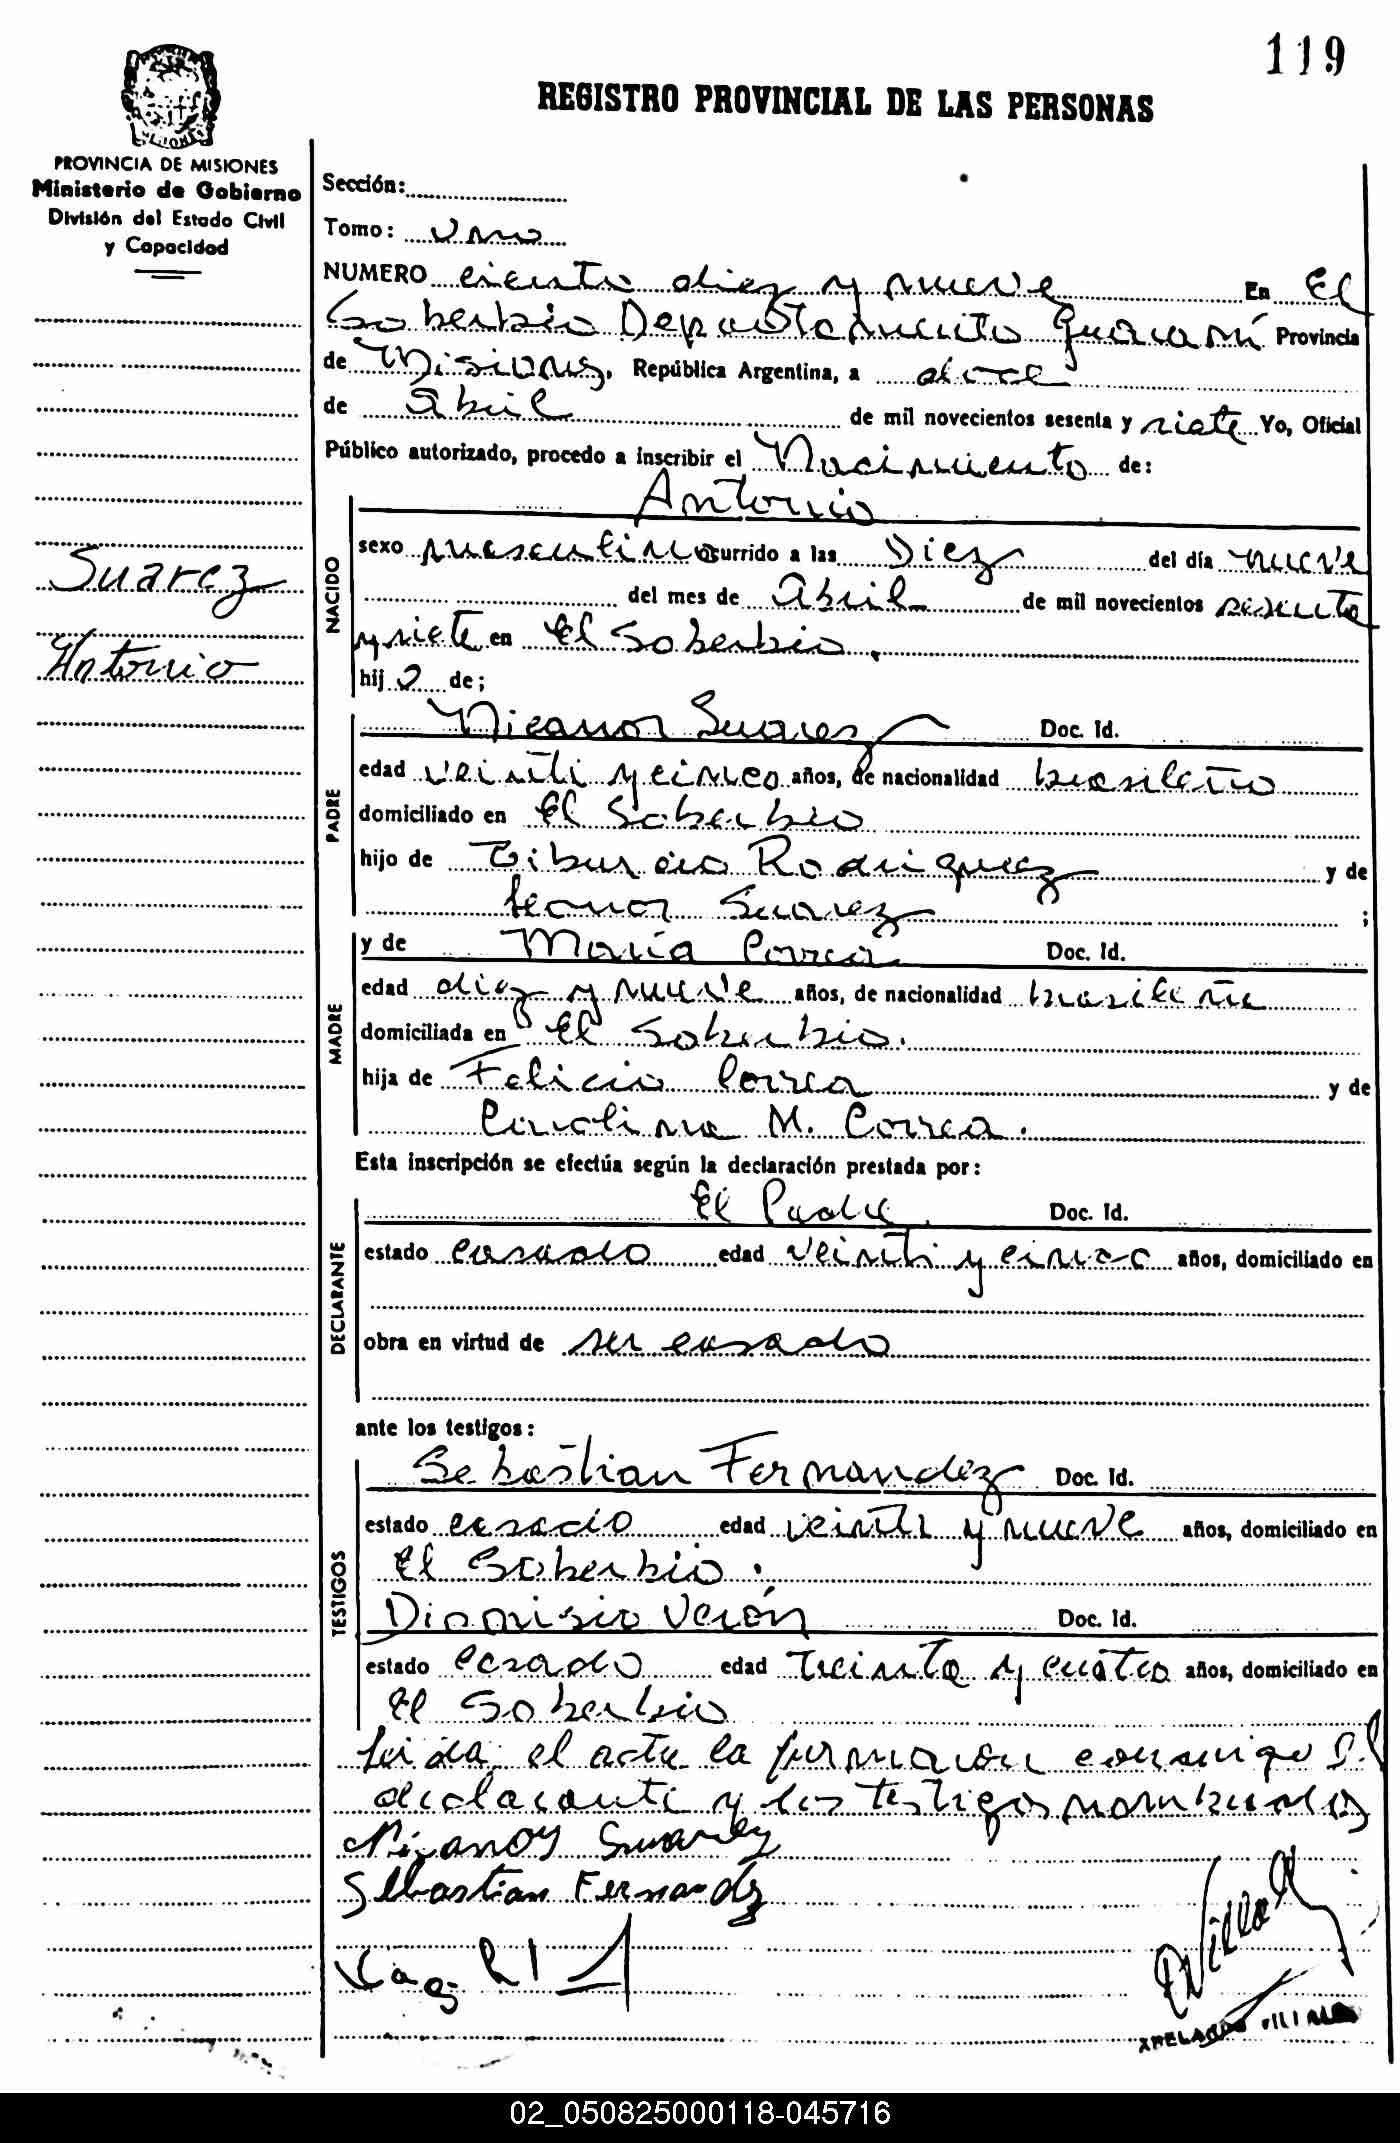 119
REGISTRO PROVINCIAL DE LAS PERSONAS
PROVINCIA DE MISIONES
Ministerio de Gobierno
División del Estado Civil
y Capacidad
Suarez
Antonio
Sección:
Tomo: Uno
NUMERO ciento diez y nueve En El
Soberbio Departamento Guaraní Provincia
de Misiones, República Argentina, a doce
de Abril de mil novecientos sesenta y siete Yo, Oficial
Público autorizado, procedo a inscribir el Nacimiento de:
NACIDO
Antonio
sexo masculino ocurrido a las Diez del día nueve
del mes de Abril de mil novecientos sesenta
y siete en El Soberbio.
hijo de;
PADRE
Nicanor Suarez Doc. Id.
edad veinti y cinco años, de nacionalidad brasileño
domiciliado en El Soberbio
hijo de Tiburcio Rodriguez y de
Leonor Suarez ;
MADRE
y de María Correa Doc. Id.
edad diez y nueve años, de nacionalidad brasileña
domiciliada en El Soberbio.
hija de Felicio Correa y de
Carolina M. Correa.
Esta inscripción se efectúa según la declaración prestada por:
DECLARANTE
El Padre. Doc. Id.
estado casado edad veinti y cinco años, domiciliado en
obra en virtud de ser casado
ante los testigos:
TESTIGOS
Sebastian Fernandez Doc. Id.
estado casado edad veinti y nueve años, domiciliado en
El Soberbio.
Dionisio Verón Doc. Id.
estado casado edad treinta y cuatro años, domiciliado en
El Soberbio
Leida el acta la firmaron conmigo el
declarante y los testigos nombrados
Nicanor Suarez
Sebastian Fernandez
02_050825000118-045716